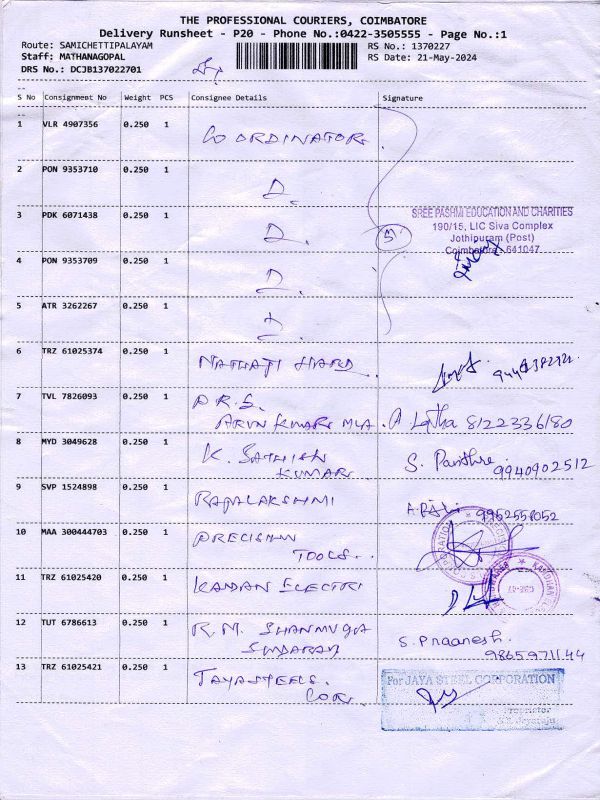 THE PROFESSIONAL COURIERS, COIMBATORE
Delivery Runsheet - P20 - Phone No.:0422-3505555 - Page No.:1
Route: SAMICHETTIPALAYAM RS No.: 1370227
Staff: MATHANAGOPAL RS Date: 21-May-2024
DRS No.: DCJB137022701
S No Consignment No Weight PCS Consignee Details Signature
1 VLR 4907356 0.250 1 COORDINATOR
2 PON 9353710 0.250 1 D.
3 PDK 6071438 0.250 1 D.
SREE PASHMI EDUCATION AND CHARITIES
190/15, LIC Siva Complex
Jothipuram (Post)
Coimbatore - 641047
5
4 PON 9353709 0.250 1 D.
5 ATR 3262267 0.250 1
6 TRZ 61025374 0.250 1
7 TVL 7826093 0.250 1 P.R.S.
ARUN KUMAR MLA. A Latha 8122336180
8 MYD 3049628 0.250 1 K. SATHISH
KUMAR S. Pavithre. 9940902512
9 SVP 1524898 0.250 1 RAJALAKSHMI 9952558052
10 MAA 300444703 0.250 1 PRECISION
TOOLS..
11 TRZ 61025420 0.250 1 KANDAN ELECTRI
12 TUT 6786613 0.250 1 R.M. SHANMUGA
SUNDARAM S. Praanesh.
9865971144
13 TRZ 61025421 0.250 1 JAYASTEELS.
COR.
For JAYA STEEL CORPORATION
Proprietor